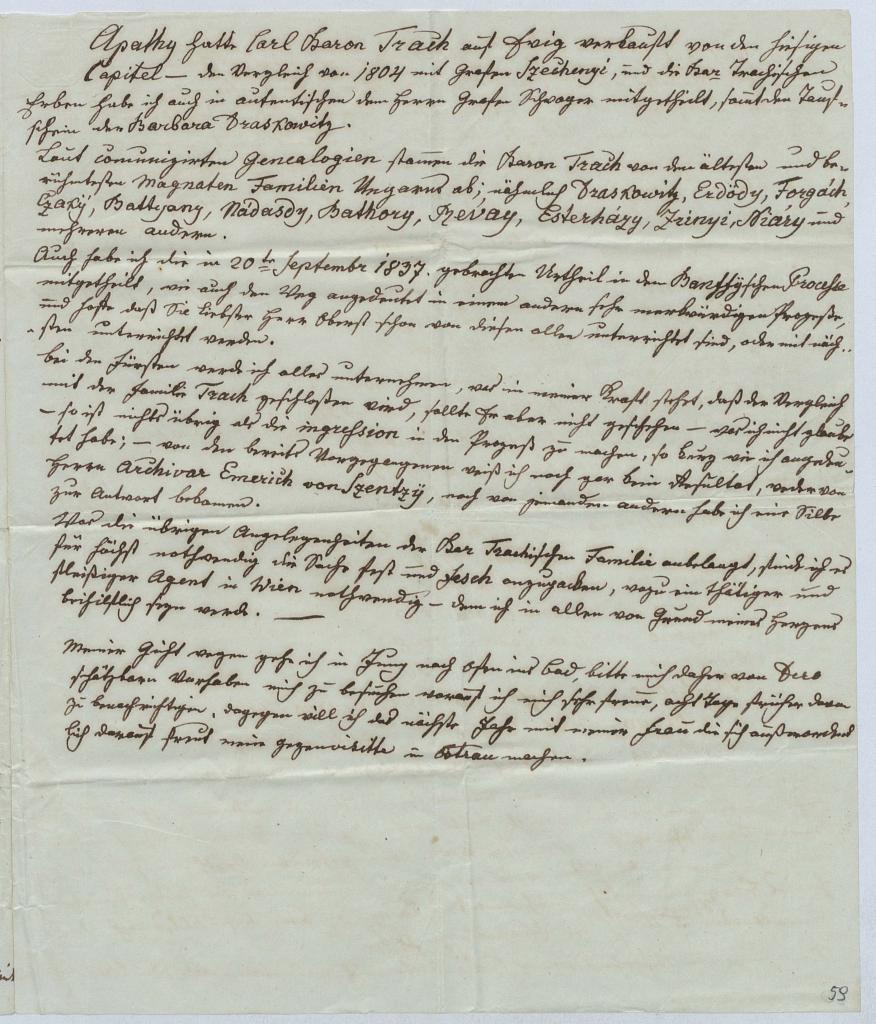 Apathy hatte Carl Baron Trach auf Ewig verkauft von den hiesigen
Capitel — den Vergleich von 1804 mit Grafen Szechenyi, und die Bar Trachischen
Erben habe ich auch in autentischen dem Herrn Grafen Schwager mitgetheilt, samt den Tauf-
schein der Barbara Draskowitz.
Laut comunizirten Genealogien stamen die Baron Trach von den ältesten und be-
rühmtesten Magnaten Familien Ungarns ab; nähmlich Draskowitz, Erdödy, Forgách,
Czaky, Battyany, Nádasdy, Bathory, Revay, Esterházy, Zrinyi, Niáry und
mehreren andern.
Auch habe ich die in 20ten Septembr 1837. gebrachte Urtheil in den Banffyschen Processe
mitgetheilt, wie auch den Weg angedeutet in einem andern sehr merkwürdigen Prozeße,
und hoffe daß Sie liebster Herr Oberst schon von diesen allen unterrichtet sind, oder mit näch-
sten unterrichtet werden.
Bei den Fürsten werde ich alles unternehmen, was in meiner Kraft stehet, daß der Vergleich
mit der Familie Trach geschloßen wird, sollte Er aber nicht geschehen — was ich nicht glaube
— so ist nichts übrig als die ingression in den Prozeß zu machen, so kurz wie ich angedeu-
tet habe; — von den bereits Vorgegangenen weiß ich noch gar kein Resultat, weder von
Herrn Archivar Emerich von Szentzy, noch von jemanden andern habe ich eine Silbe
zur Antwort bekomen.
Was die übrigen Angelegenheiten der Bar Trachischen Familie anbelangt, finde ich es
für höchst nothwendig die Sache fest und fesch anzupacken, wozu ein thätiger und
fleißiger Agent in Wien nothwendig — dem ich in allen von Grund meines Herzens
behilflich seyn werde. —
Meiner Gicht wegen gehe ich in Juny nach Ofen ins Bad, bitte mich daher von Dero
schätzbarn Vorhaben mich zu besuchen worauf ich mich sehr freue, acht Tage früher davon
zu benachrichtigen, dagegen will ich das nächste Jahr mit meiner Frau die sich außerordent
lich darauf freut meine gegenvisitte in Ostrau machen.
59